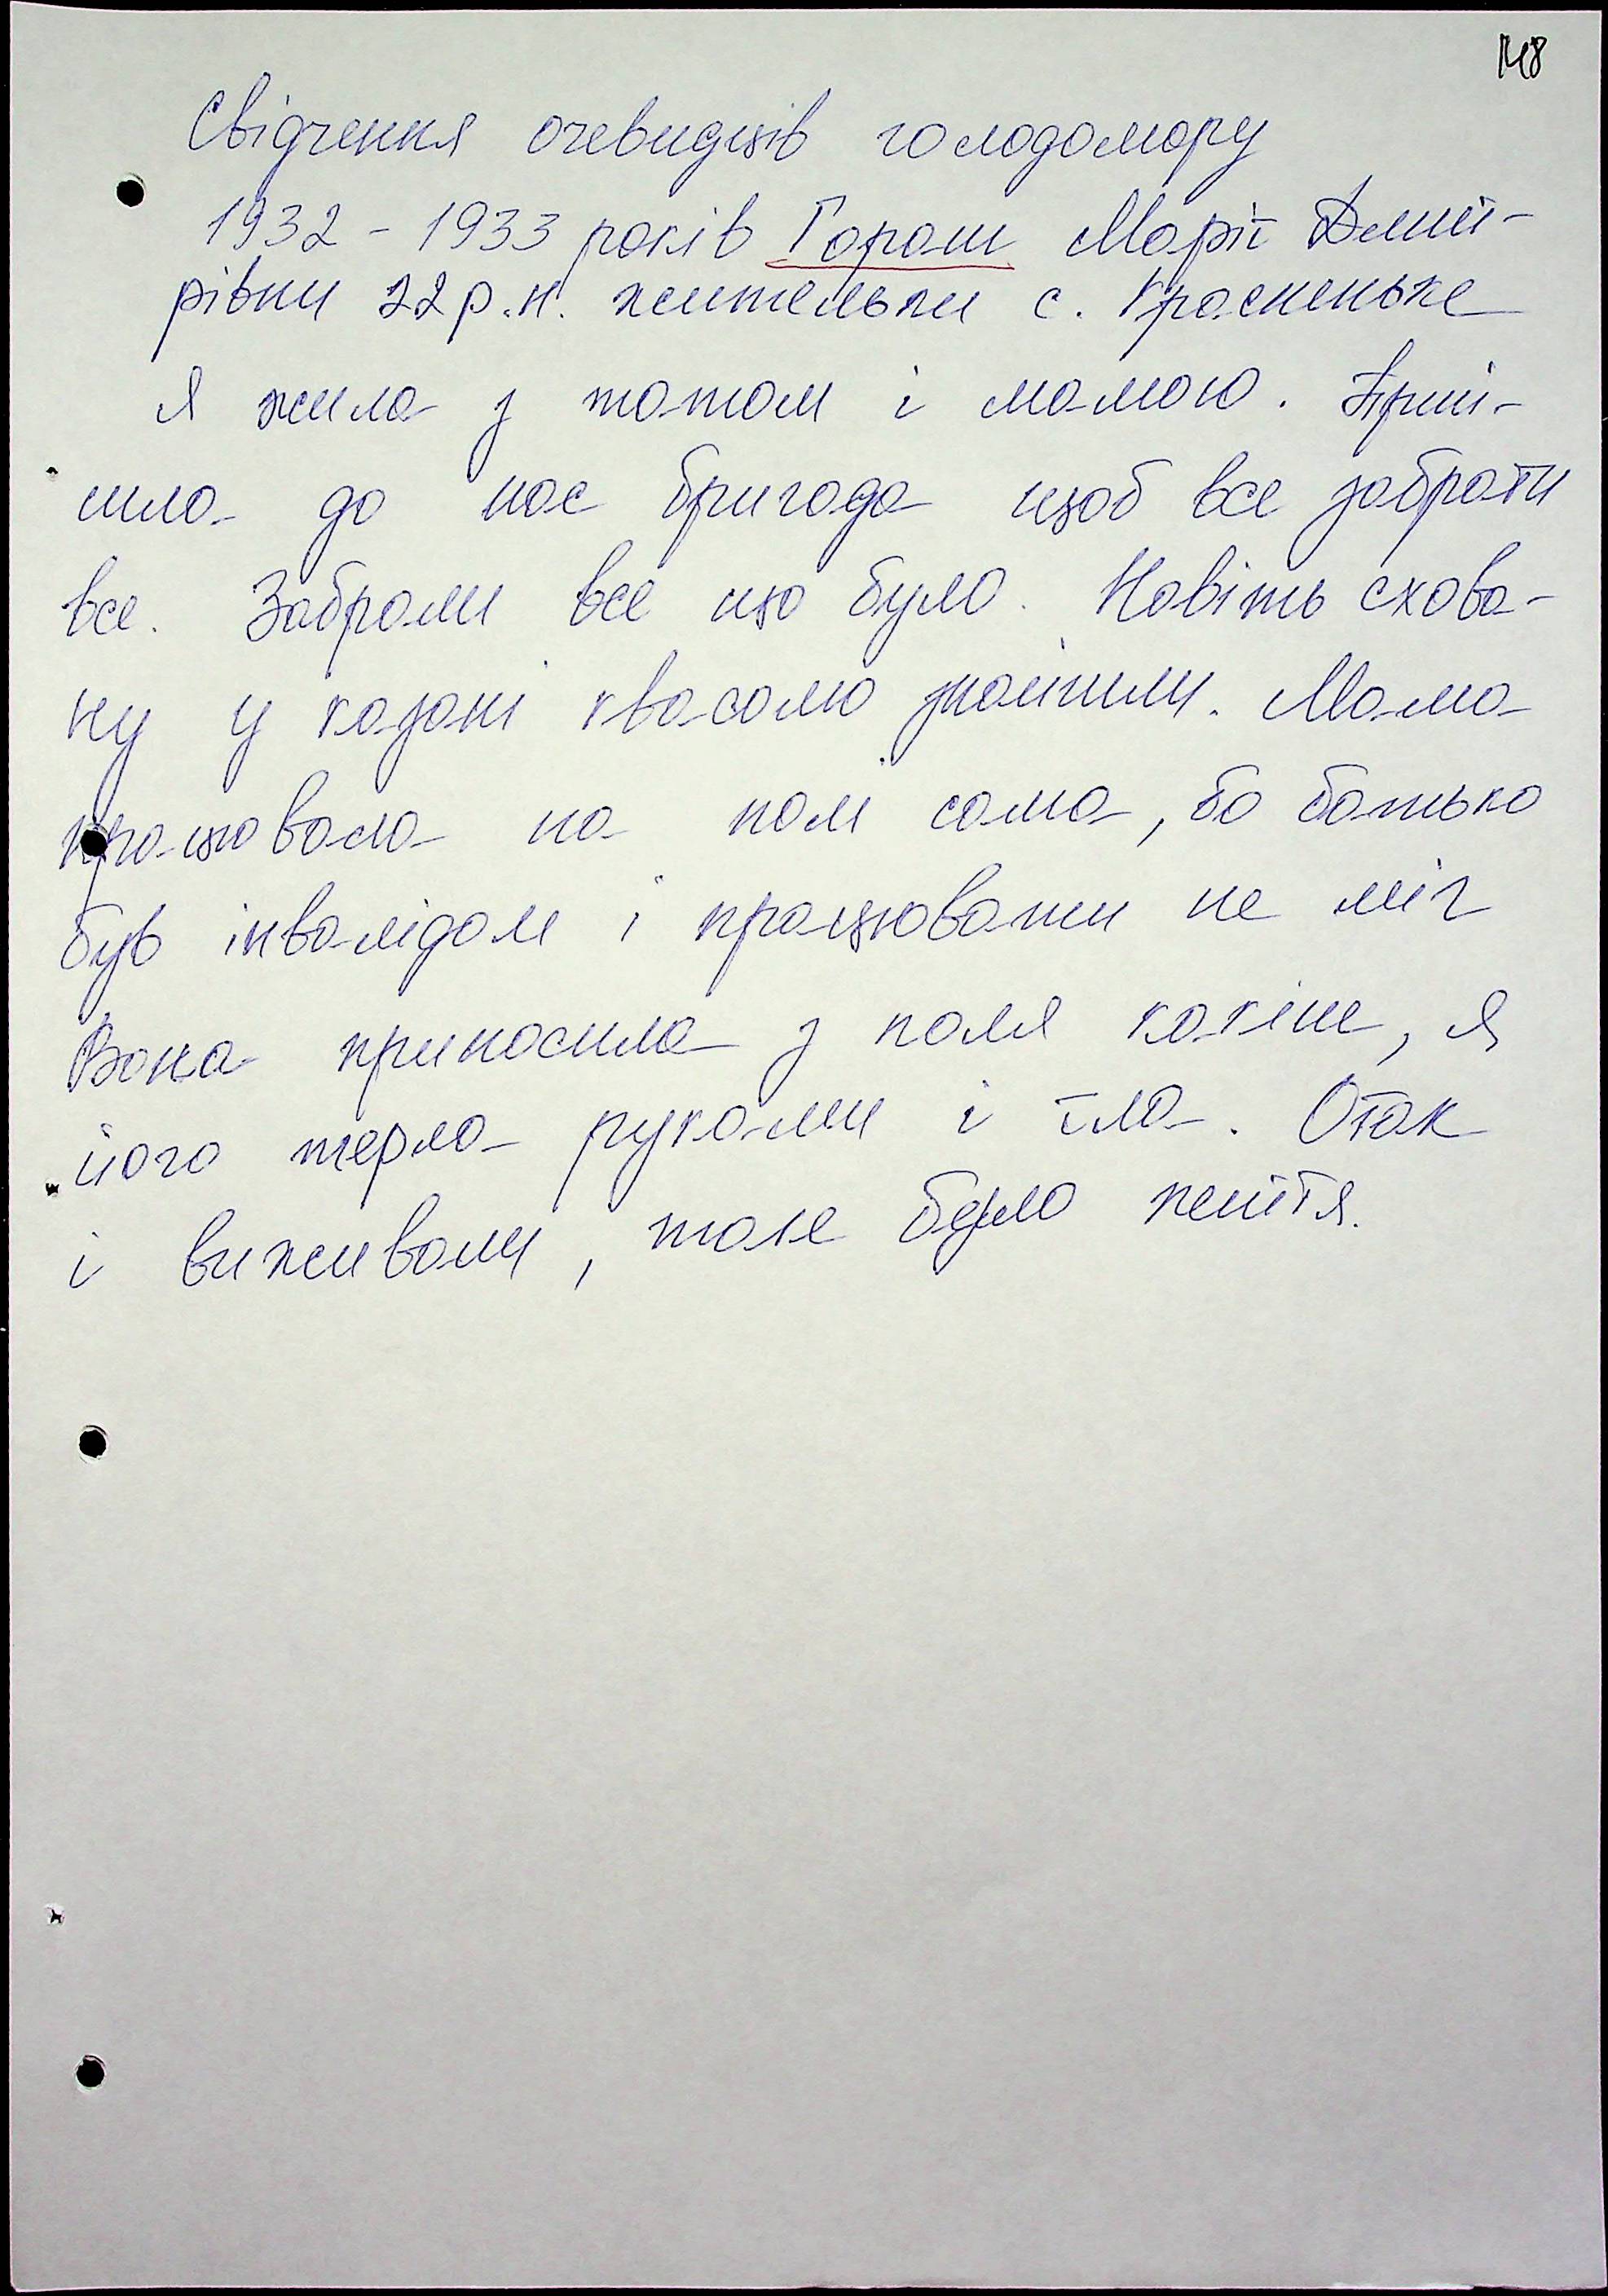 148
Свідчення очевидців голодомору
1932 - 1933 років Гораш Марії Дмит-
рівни 22 р.н. жительки с. Красненьке
Я жила з татом і мамою. Прий-
шла до нас бригада щоб все забрати
все. Забрали все що було. Навіть схова-
ну у казані квасолю знайшли. Мама
працювала на полі сама, бо батько
був інвалідом і працювати не міг
Вона приносила з поля какіше, я
його терла руками і їла. Отак
і виживали, таке було життя.